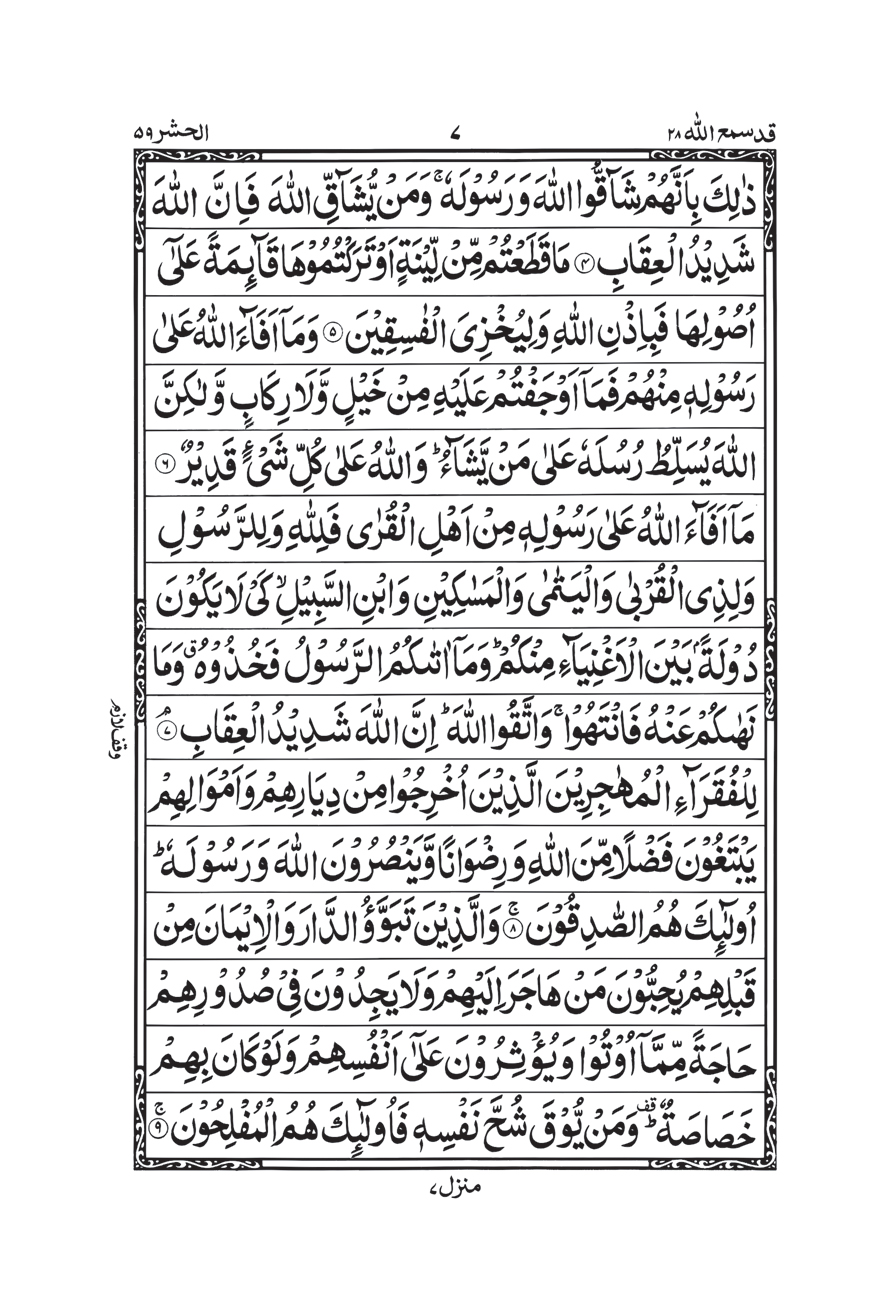 قد سمع الله ٢٨
٧
الحشر ٥٩
ذٰلِكَ بِاَنَّهُمْ شَآقُّوا اللّٰهَ وَرَسُوْلَهٗ ۚ وَمَنْ يُّشَآقِّ اللّٰهَ فَاِنَّ اللّٰهَ
شَدِيْدُ الْعِقَابِ ۝۴ مَا قَطَعْتُمْ مِّنْ لِّيْنَةٍ اَوْ تَرَكْتُمُوْهَا قَآئِمَةً عَلٰٓى
اُصُوْلِهَا فَبِاِذْنِ اللّٰهِ وَلِيُخْزِىَ الْفٰسِقِيْنَ ۝۵ وَمَآ اَفَآءَ اللّٰهُ عَلٰى
رَسُوْلِهٖ مِنْهُمْ فَمَآ اَوْجَفْتُمْ عَلَيْهِ مِنْ خَيْلٍ وَّلَا رِكَابٍ وَّلٰكِنَّ
اللّٰهَ يُسَلِّطُ رُسُلَهٗ عَلٰى مَنْ يَّشَآءُ ؕ وَاللّٰهُ عَلٰى كُلِّ شَىْءٍ قَدِيْرٌ ۝۶
مَآ اَفَآءَ اللّٰهُ عَلٰى رَسُوْلِهٖ مِنْ اَهْلِ الْقُرٰى فَلِلّٰهِ وَلِلرَّسُوْلِ
وَلِذِى الْقُرْبٰى وَالْيَتٰمٰى وَالْمَسٰكِيْنِ وَابْنِ السَّبِيْلِ ۙ كَىْ لَا يَكُوْنَ
دُوْلَةًۢ بَيْنَ الْاَغْنِيَآءِ مِنْكُمْ ؕ وَمَآ اٰتٰىكُمُ الرَّسُوْلُ فَخُذُوْهُ ۗ وَمَا
نَهٰىكُمْ عَنْهُ فَانْتَهُوْا ۚ وَاتَّقُوا اللّٰهَ ؕ اِنَّ اللّٰهَ شَدِيْدُ الْعِقَابِ ۘ ۝۷
وقف لازم
لِلْفُقَرَآءِ الْمُهٰجِرِيْنَ الَّذِيْنَ اُخْرِجُوْا مِنْ دِيَارِهِمْ وَاَمْوَالِهِمْ
يَبْتَغُوْنَ فَضْلًا مِّنَ اللّٰهِ وَرِضْوَانًا وَّيَنْصُرُوْنَ اللّٰهَ وَرَسُوْلَهٗ ؕ
اُولٰٓئِكَ هُمُ الصّٰدِقُوْنَ ۚ ۝۸ وَالَّذِيْنَ تَبَوَّؤُ الدَّارَ وَالْاِيْمَانَ مِنْ
قَبْلِهِمْ يُحِبُّوْنَ مَنْ هَاجَرَ اِلَيْهِمْ وَلَا يَجِدُوْنَ فِىْ صُدُوْرِهِمْ
حَاجَةً مِّمَّآ اُوْتُوْا وَيُؤْثِرُوْنَ عَلٰٓى اَنْفُسِهِمْ وَلَوْ كَانَ بِهِمْ
خَصَاصَةٌ ؕ قف وَمَنْ يُّوْقَ شُحَّ نَفْسِهٖ فَاُولٰٓئِكَ هُمُ الْمُفْلِحُوْنَ ۚ ۝۹
منزل ٧